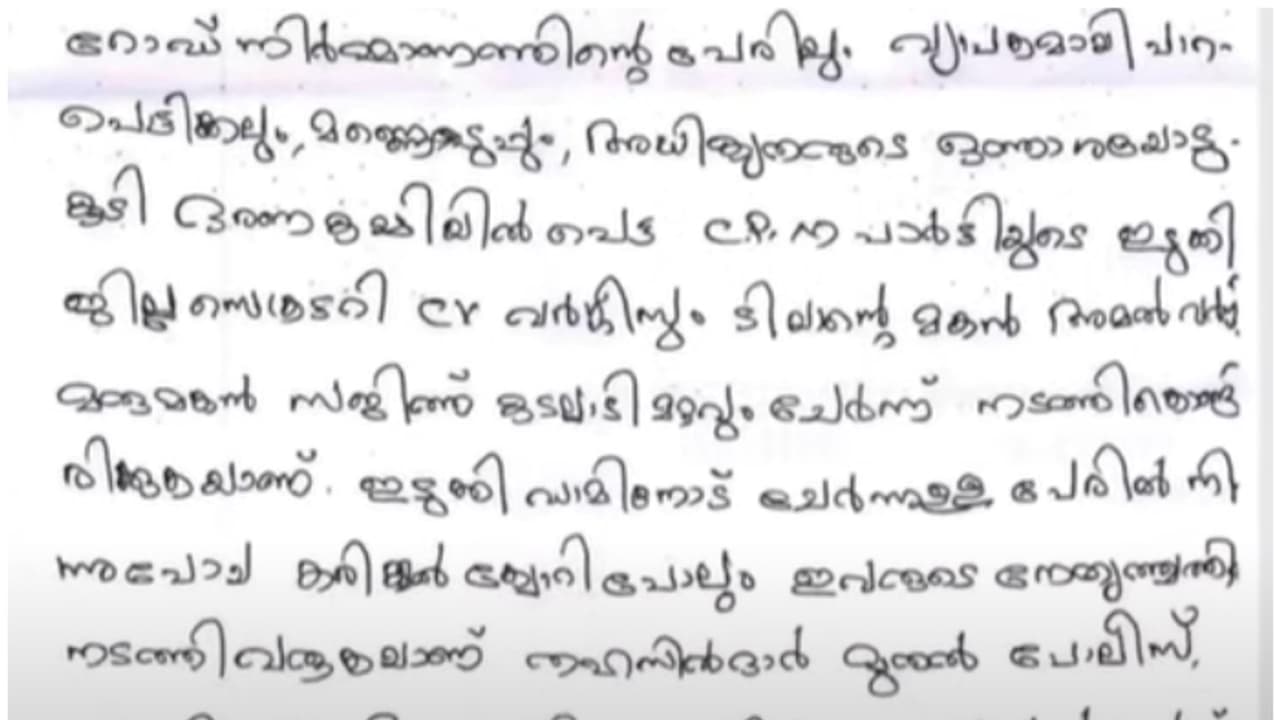 റോഡ് നിർമ്മാണത്തിന്റെ പേരിലും വ്യാപകമായി പാറ
പൊട്ടിക്കലും, മണ്ണെടുപ്പും, അധികൃതരുടെ ഒത്താശയോടു
കൂടി ഭരണകക്ഷിയിൽ പെട്ട C.P.M പാർട്ടിയുടെ ഇടുക്കി
ജില്ല സെക്രട്ടറി CV വർഗ്ഗീസും ടിയാന്റെ മകൻ അമൽ വർഗ്ഗീ
മരുമകൻ സജിത്ത് കടലാടി മറ്റും ചേർന്ന് നടത്തികൊണ്ടി
രിക്കുകയാണ്. ഇടുക്കി ഡാമിനോട് ചേർന്നുള്ള പേരിൽ നി
ന്നുപോയ കരിങ്കൽ ക്വോറി പോലും ഇവരുടെ നേതൃത്വത്തി
നടത്തി വരുകയാണ് തഹസിൽദാർ മുതൽ പോലീസ്,